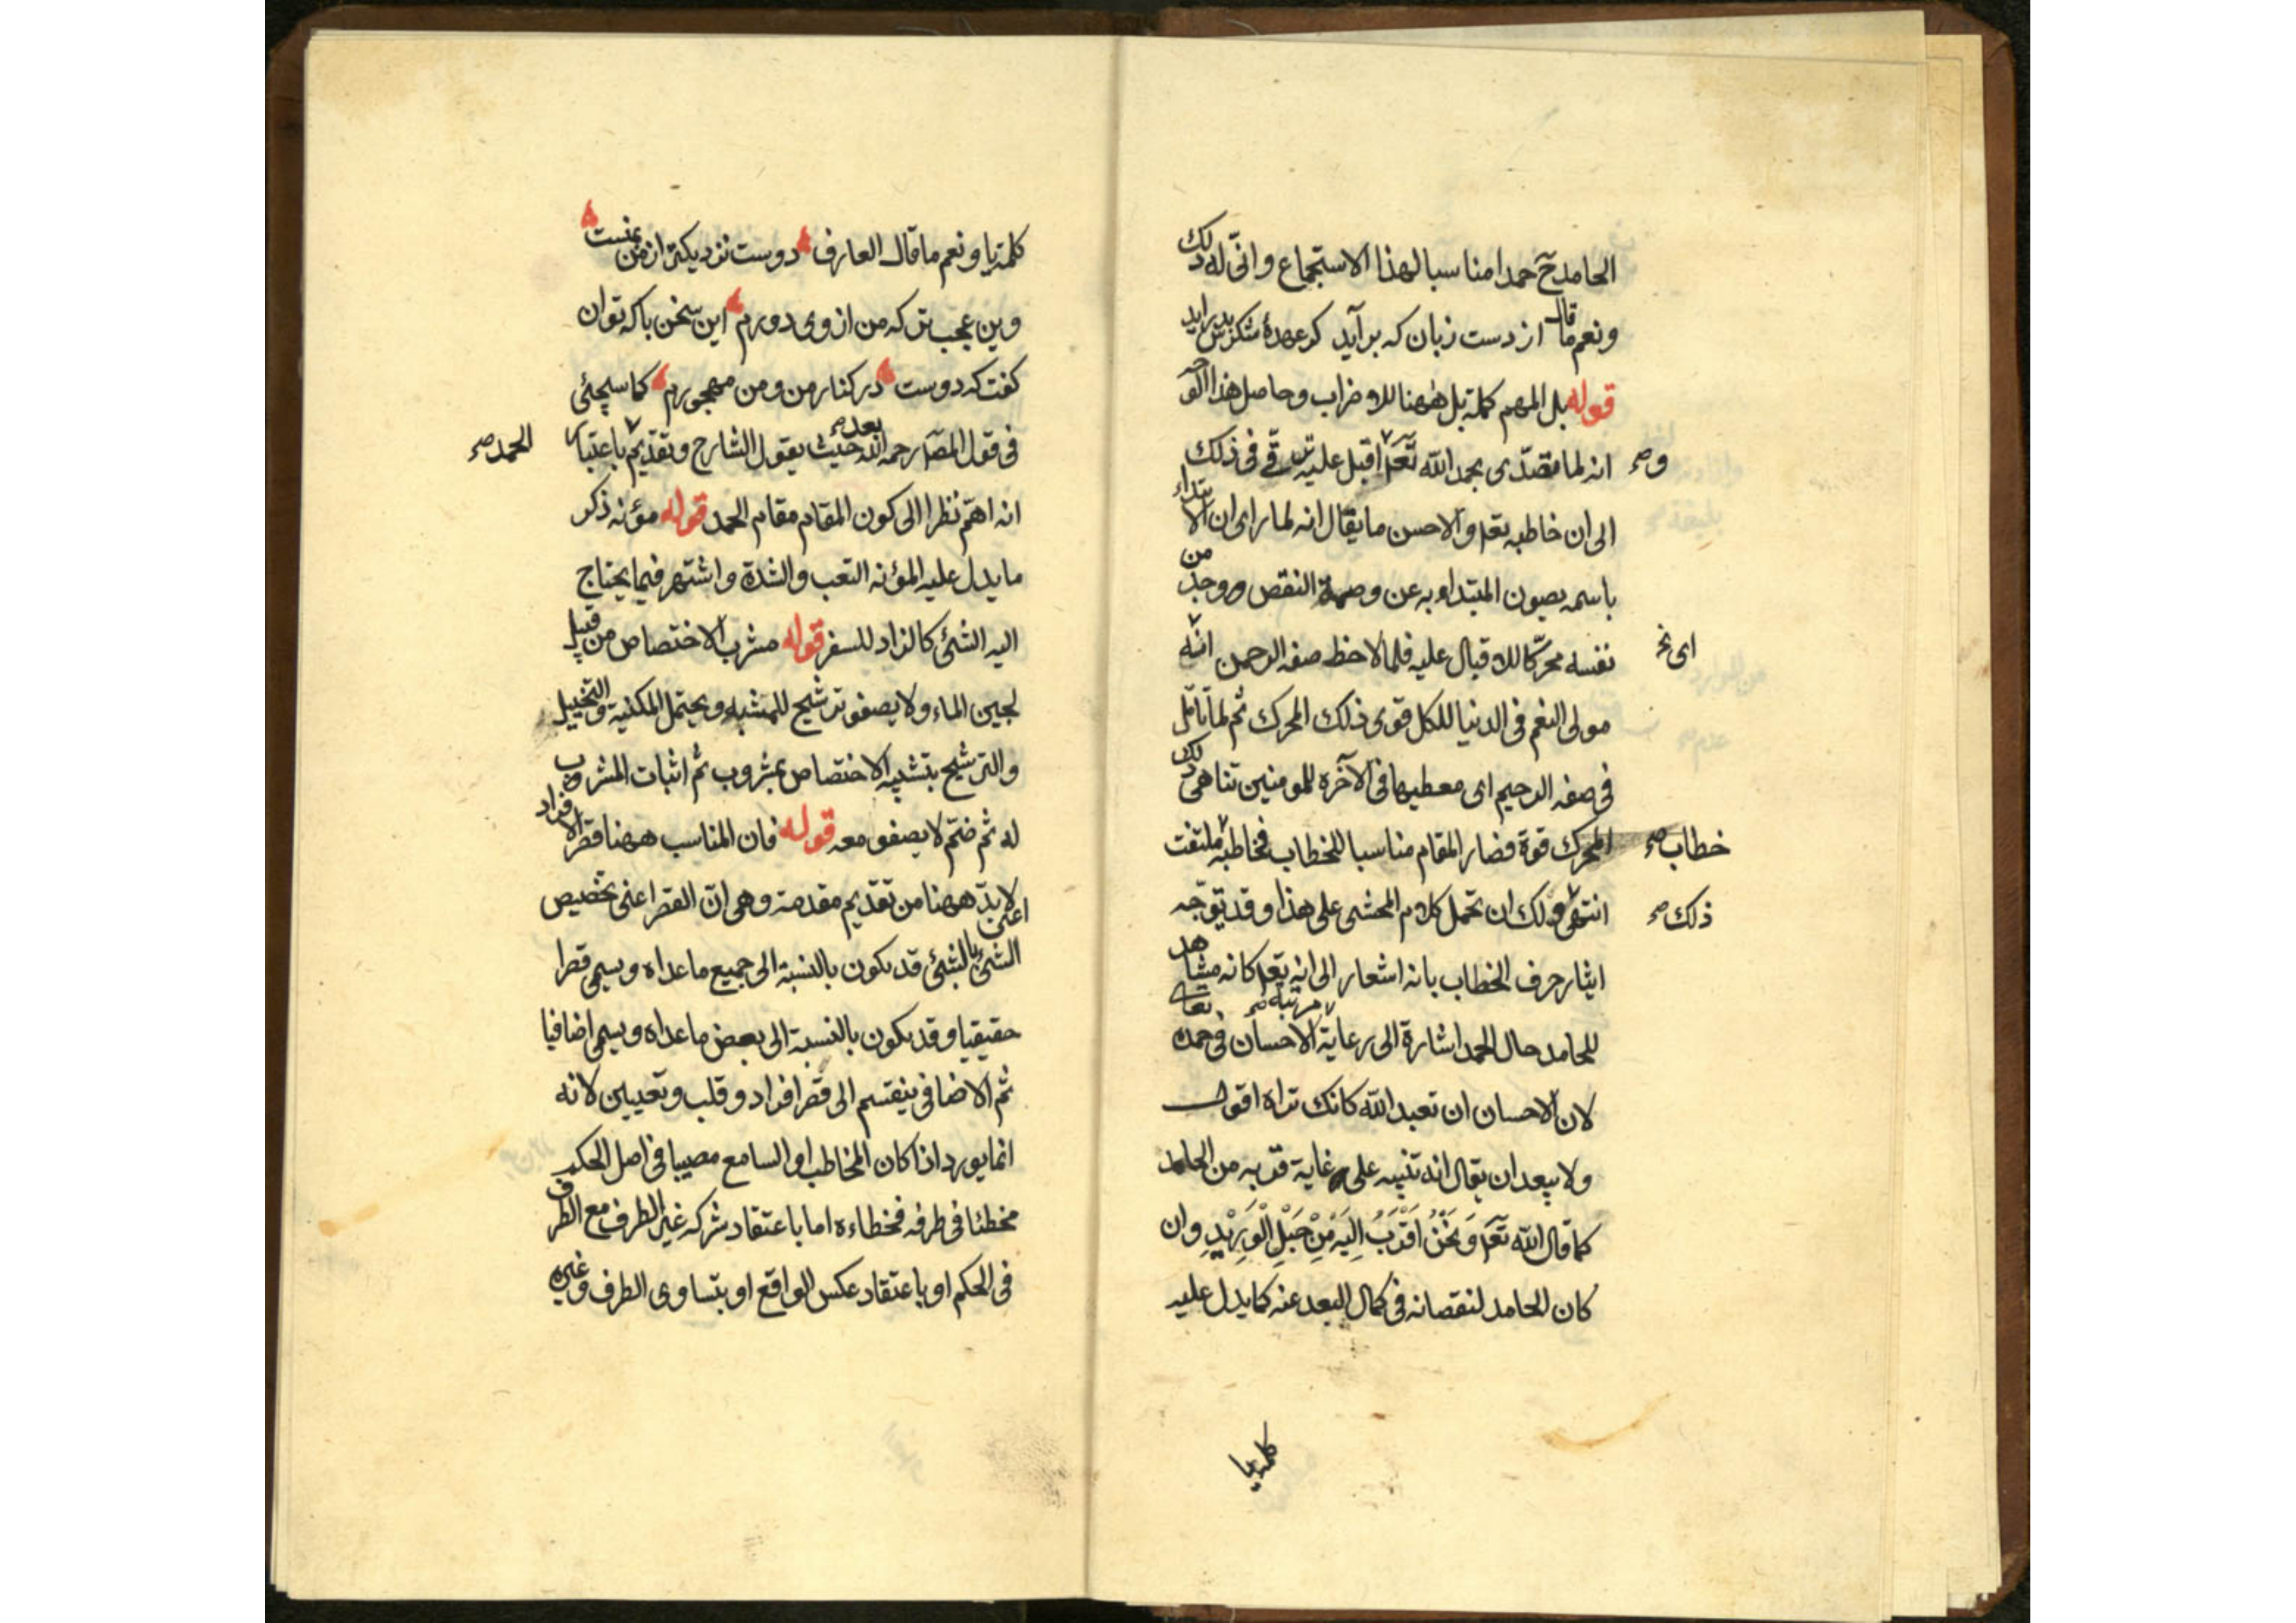 الحامد ح حمدا مناسبا لهذا الاستجماع وانّى له ذلك
ونعم ما قال از دست زبان كه برآيد كز عهدهٔ شكرش بدرايد
قوله بل المهم كلمة بل ههنا للاضراب وحاصل هذا
انه لما تصدّى بحمد الله تعم اقبل عليه وترقّى فى ذلك
وصح
الى ان خاطبه تعم والاحسن ما يقال انه لما راى ان الابتداء
باسمه يصون المبتداء به عن وصمة النقص ووجد من
نفسه محرّكا للاقبال عليه فلما لاحظ صفه الرحمن انه
اى نخ
مولى النعم فى الدنيا للكل قوى ذلك المحرك ثم لما تامّل
فى صفه الرحيم اى معطيها فى الآخره للمومنين تناهى ذلك
المحرك قوة فصار المقام مناسبا للخطاب فخاطبه ملتفت
خطاب صح
انتهى ولك ان تحمل كلام المحشى على هذا وقد يوجّه
ذلك صح
ايثار حرف الخطاب بانه اشعار الى انه تعم كانه مشاهد
للحامد حال الحمد اشارة الى رعاية مرتبة صح الاحسان فى حمده تعالى
لان الاحسان ان تعبد الله كانك تراه اقول
ولا يبعد ان يقال انه تنبيه على غاية قربه من الحامد
كما قال الله تعم وَنَحْنُ اَقْرَبُ اِلَيْهِ مِنْ حَبْلِ الْوَرِيْدِ وان
كان الحامد لنقصانه فى كمال البعد عنه كما يدل عليه
كلمة يا
كلمة يا ونعم ما قال العارف دوست نزديكتر از من بمنست
وين عجب تر كه من از وى دورم اين سخن با كه توان
كفت كه دوست در كنار من و من مهجورم كما سيجئ
فى قول المصـ رحمه الله بعد صح حيث يقول الشارح وتقديم باعتبار
الحمد صح
انه اهمّ نظرا الى كون المقام مقام الحمد قوله مؤنه ذكر
ما يدل عليه المؤنه التعب والشدة واشتهر فيما يحتاج
اليه الشئ كالزاد للسفر قوله مشرب الاختصاص من قبيل
لجين الماء ولا يصفو ترشيح للمشبه ويحتمل المكنيه والتخييل
والترشيح بتشبيه الاختصاص بمشروب ثم اثبات المشروب
له ثم ضمّ لا يصفو معه قوله فان المناسب ههنا قصر الافراد
لابدّ ههنا من تقديم مقدمة وهى انّ القصر اعنى تخصيص
الشئ بالشئ قد يكون بالنسبة الى جميع ما عداه ويسمى قصرا
حقيقيا وقد يكون بالنسبة الى بعض ما عداه ويسمى اضافيا
ثم الاضافى ينقسم الى قصر افراد وقلب وتعيين لانه
انما يورد اذا كان المخاطب او السامع مصيبا فى اصل الحكم
مخطئا فى طرفه فخطاءه اما باعتقاد شركه غير الطرف مع الطرف
فى الحكم او باعتقاد عكس الواقع او بتساوى الطرف وغيره